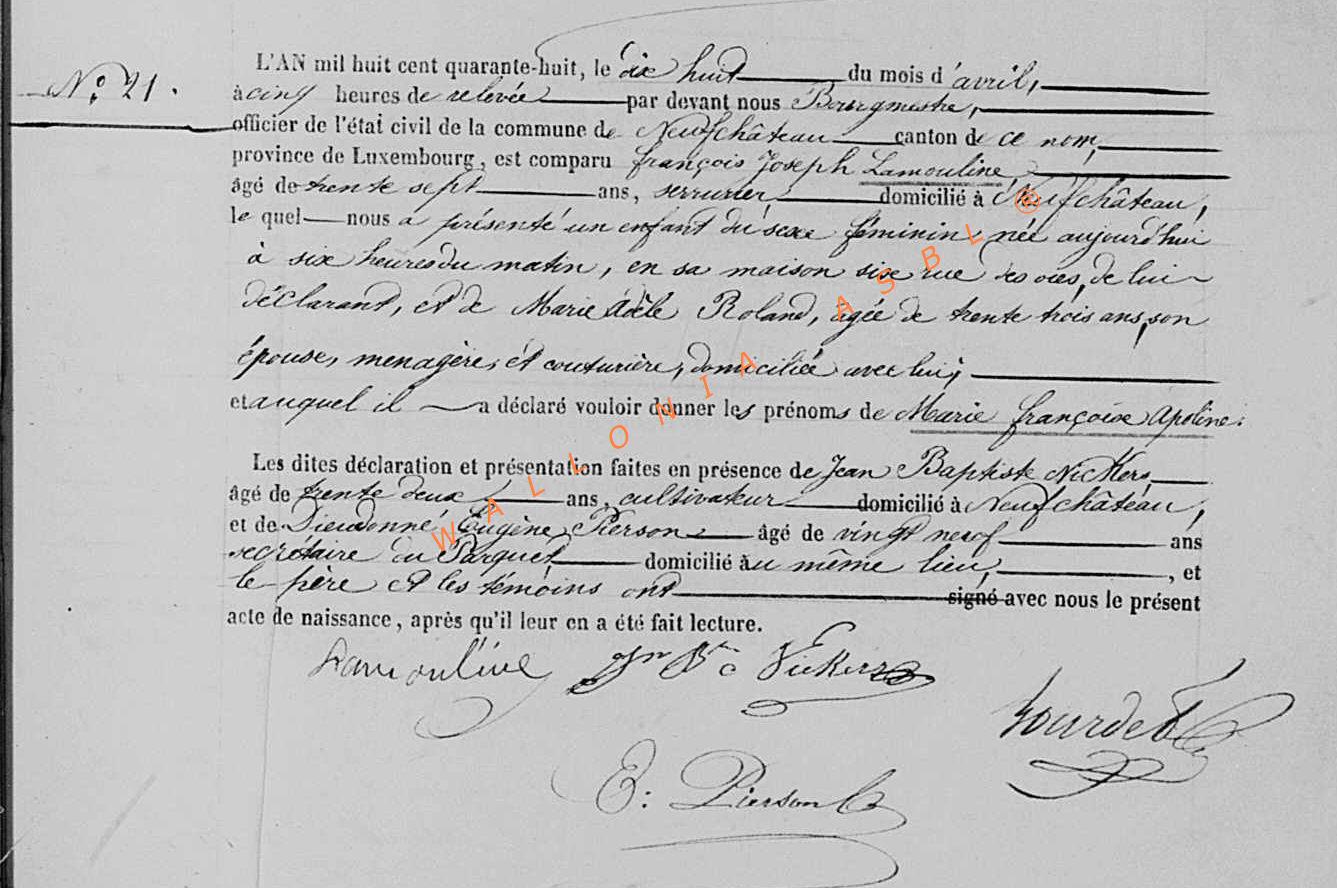 N° 21.
L'AN mil huit cent quarante-huit, le dix huit du mois d'avril,
à cinq heures de relevée par devant nous Bourgmestre,
officier de l'état civil de la commune de Neufchâteau canton de ce nom,
province de Luxembourg, est comparu françois Joseph Lamouline,
âgé de trente sept ans, serrurier domicilié à Neufchâteau,
le quel nous a présenté un enfant du sexe féminin née aujourd'hui
à six heures du matin, en sa maison sise rue des oies, de lui
déclarant, et de Marie Adèle Roland, agée de trente trois ans, son
épouse, menagère, et couturière, domiciliée avec lui,
et auquel il a déclaré vouloir donner les prénoms de Marie françoise Apoline.
Les dites déclaration et présentation faites en présence de Jean Baptiste
âgé de trente deux ans, cultivateur domicilié à Neufchâteau,
et de Dieudonné, Eugène Pierson âgé de vingt neuf ans
secrétaire du Parquet domicilié au même lieu, et
le père et les témoins ont signé avec nous le présent
acte de naissance, après qu'il leur en a été fait lecture.
Lamouline Jn Bte
E: Pierson
WALLONIA ASBL ®